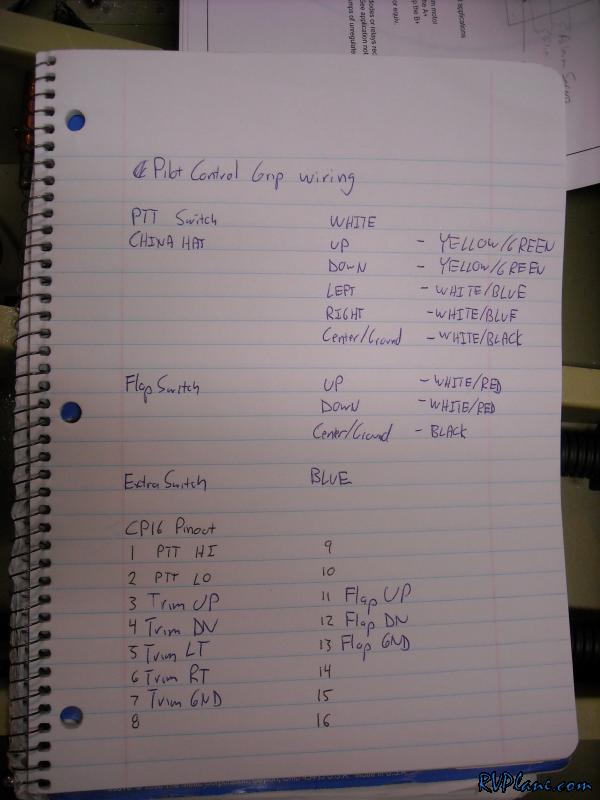 Pilot Control Grip wiring
PTT Switch WHITE
CHINA HAT UP - YELLOW/GREEN
DOWN - YELLOW/GREEN
LEFT - WHITE/BLUE
RIGHT - WHITE/BLUE
Center/Ground - WHITE/BLACK
Flap Switch UP - WHITE/RED
DOWN - WHITE/RED
Center/Ground - BLACK
Extra Switch BLUE
CP16 Pinout
1 PTT HI 9
2 PTT LO 10
3 Trim UP 11 Flap UP
4 Trim DN 12 Flap DN
5 Trim LT 13 Flap GND
6 Trim RT 14
7 Trim GND 15
8 16
RVPlane.com